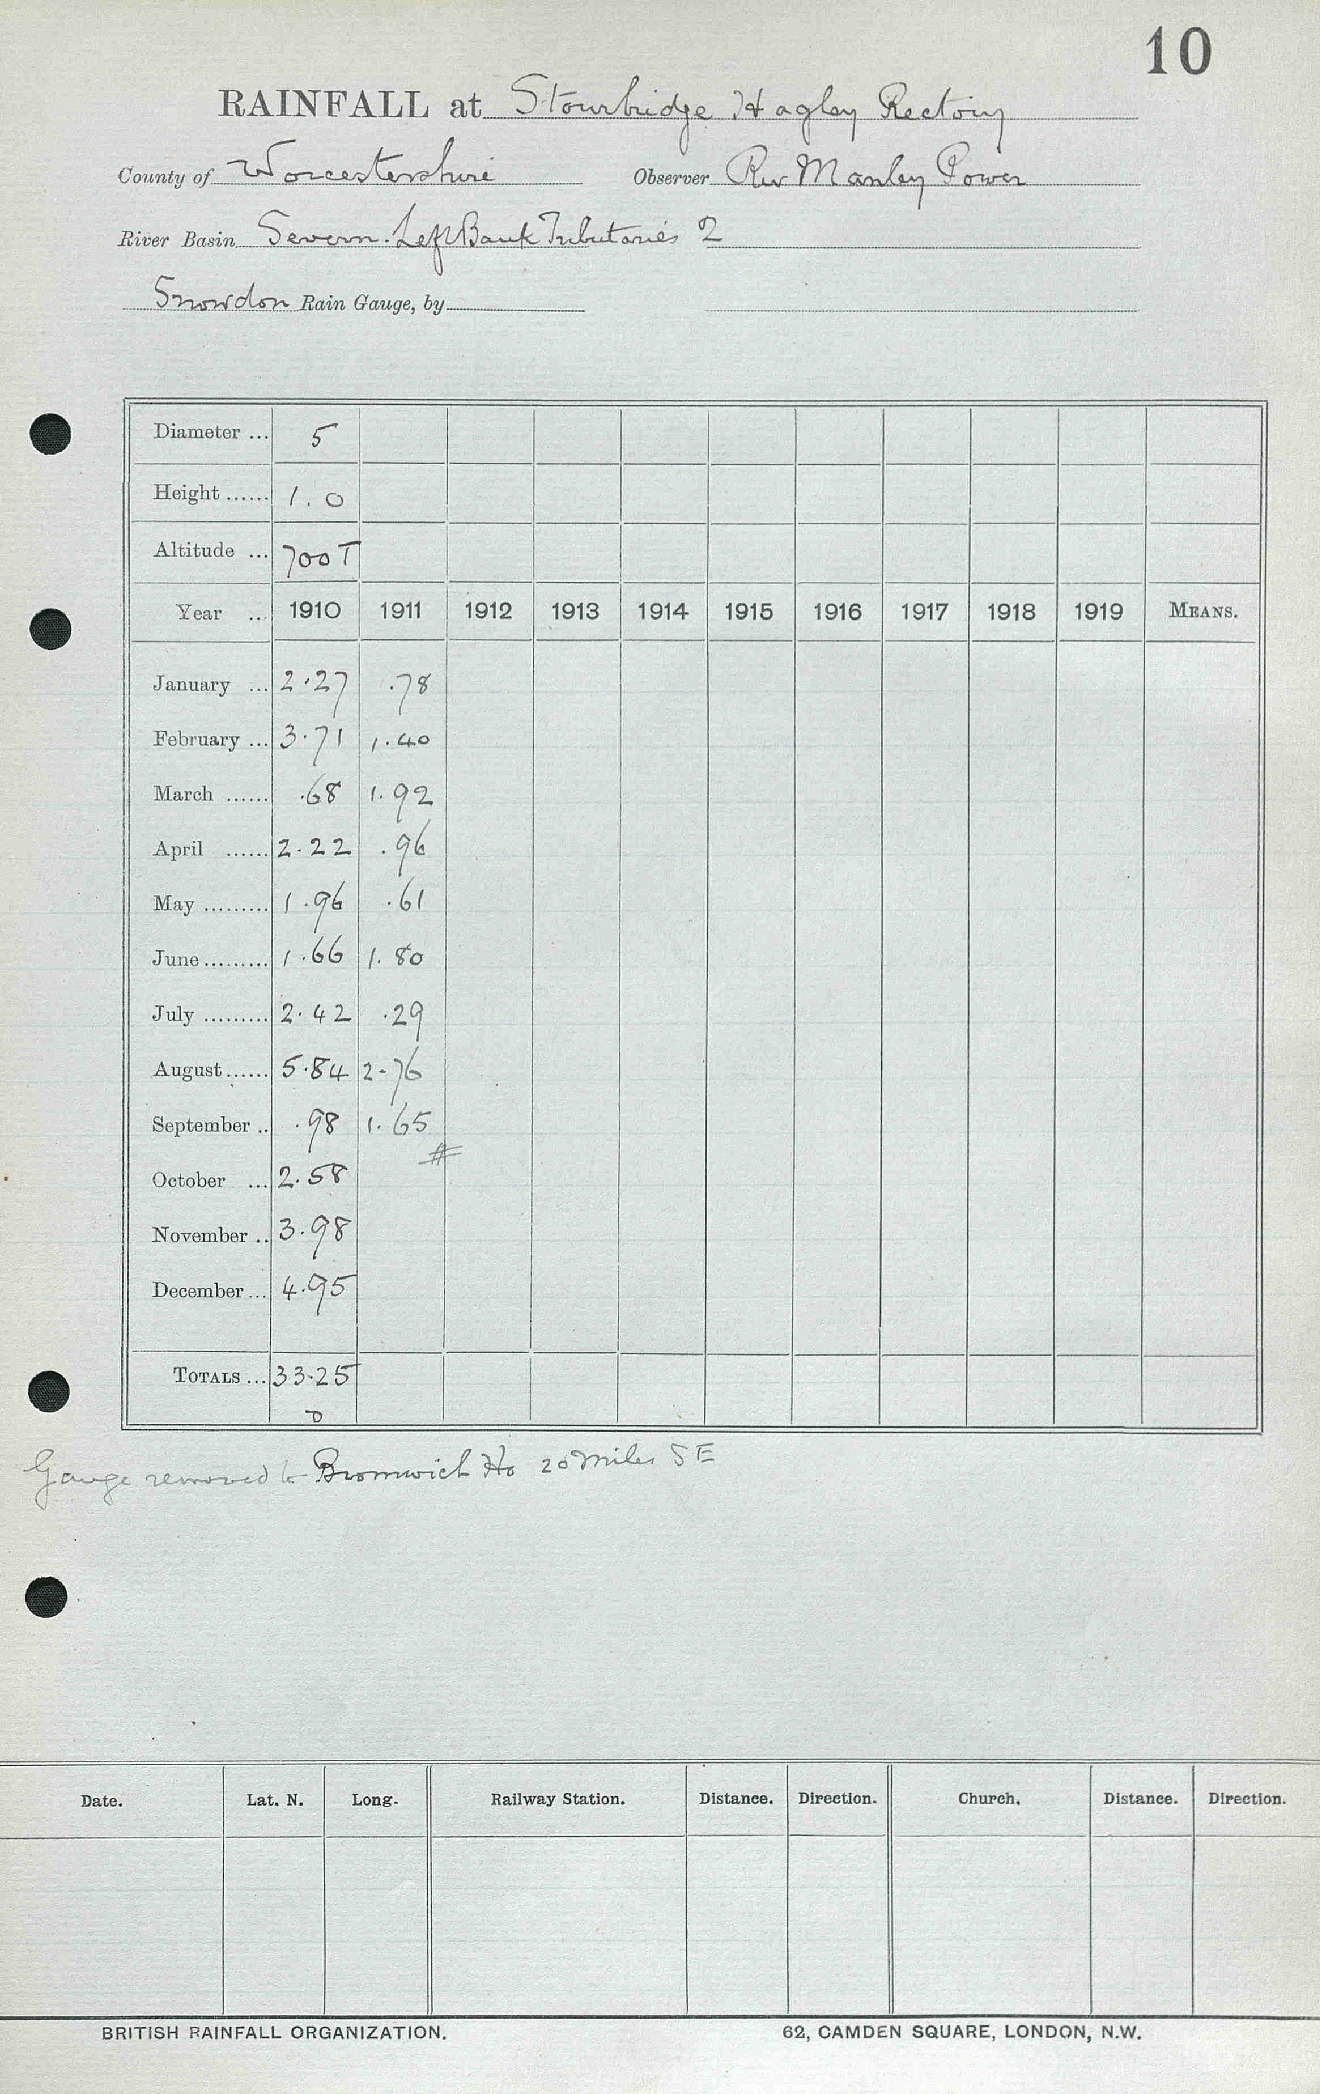 10
RAINFALL at Stourbridge Hagley Rectory
County of Worcestershire Observer Rev Manley Power
River Basin Severn. Left Bank Tributaries 2
Snowdon Rain Gauge, by
Diameter ... 5
Height ...... 1.0
Altitude ... 700 T
Year .. 1910 1911 1912 1913 1914 1915 1916 1917 1918 1919 MEANS.
January ... 2.27 .78
February ... 3.71 1.40
March ...... .68 1.92
April ...... 2.22 .96
May ......... 1.96 .61
June ......... 1.66 1.80
July ......... 2.42 .29
August ...... 5.84 2.76
September .. .98 1.65
#
October ... 2.58
November .. 3.98
December ... 4.95
TOTALS ... 33.25
Gauge removed to Bromwich Ho 20 miles SE
Date. Lat. N. Long. Railway Station. Distance. Direction. Church. Distance. Direction.
BRITISH RAINFALL ORGANIZATION. 62, CAMDEN SQUARE, LONDON, N.W.